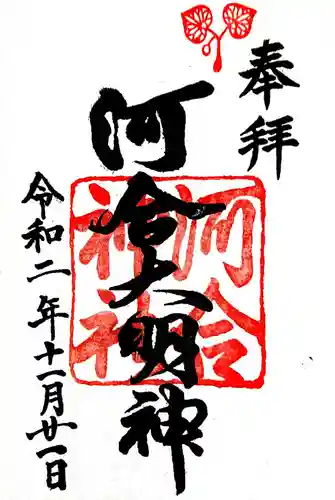 奉拝
河合大明神
河合神社
令和二年十一月廿一日